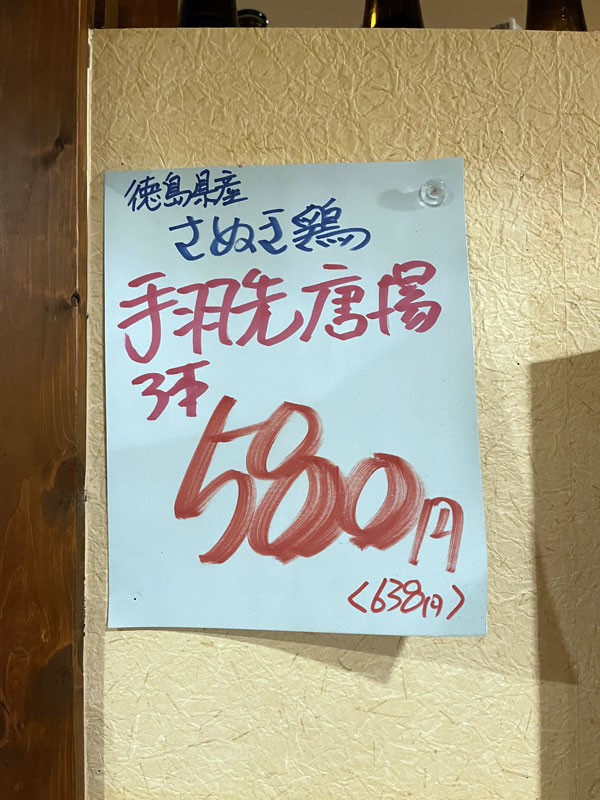 徳島県産
さぬき鶏
手羽先唐揚
3本
580円
<638円>